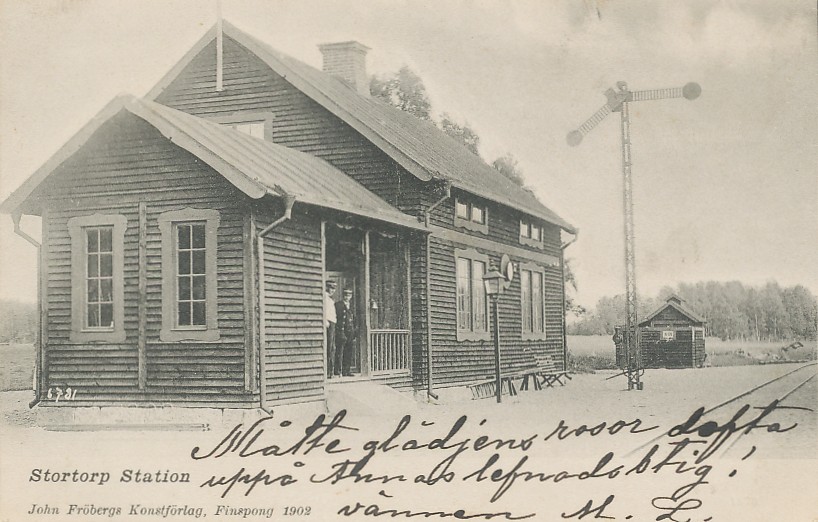 6781
Måtte glädjens rosor dofta
Stortorp Station
uppå Annas lefnadsstig!
John Fröbergs Konstförlag, Finspong 1902
vännen M. L.